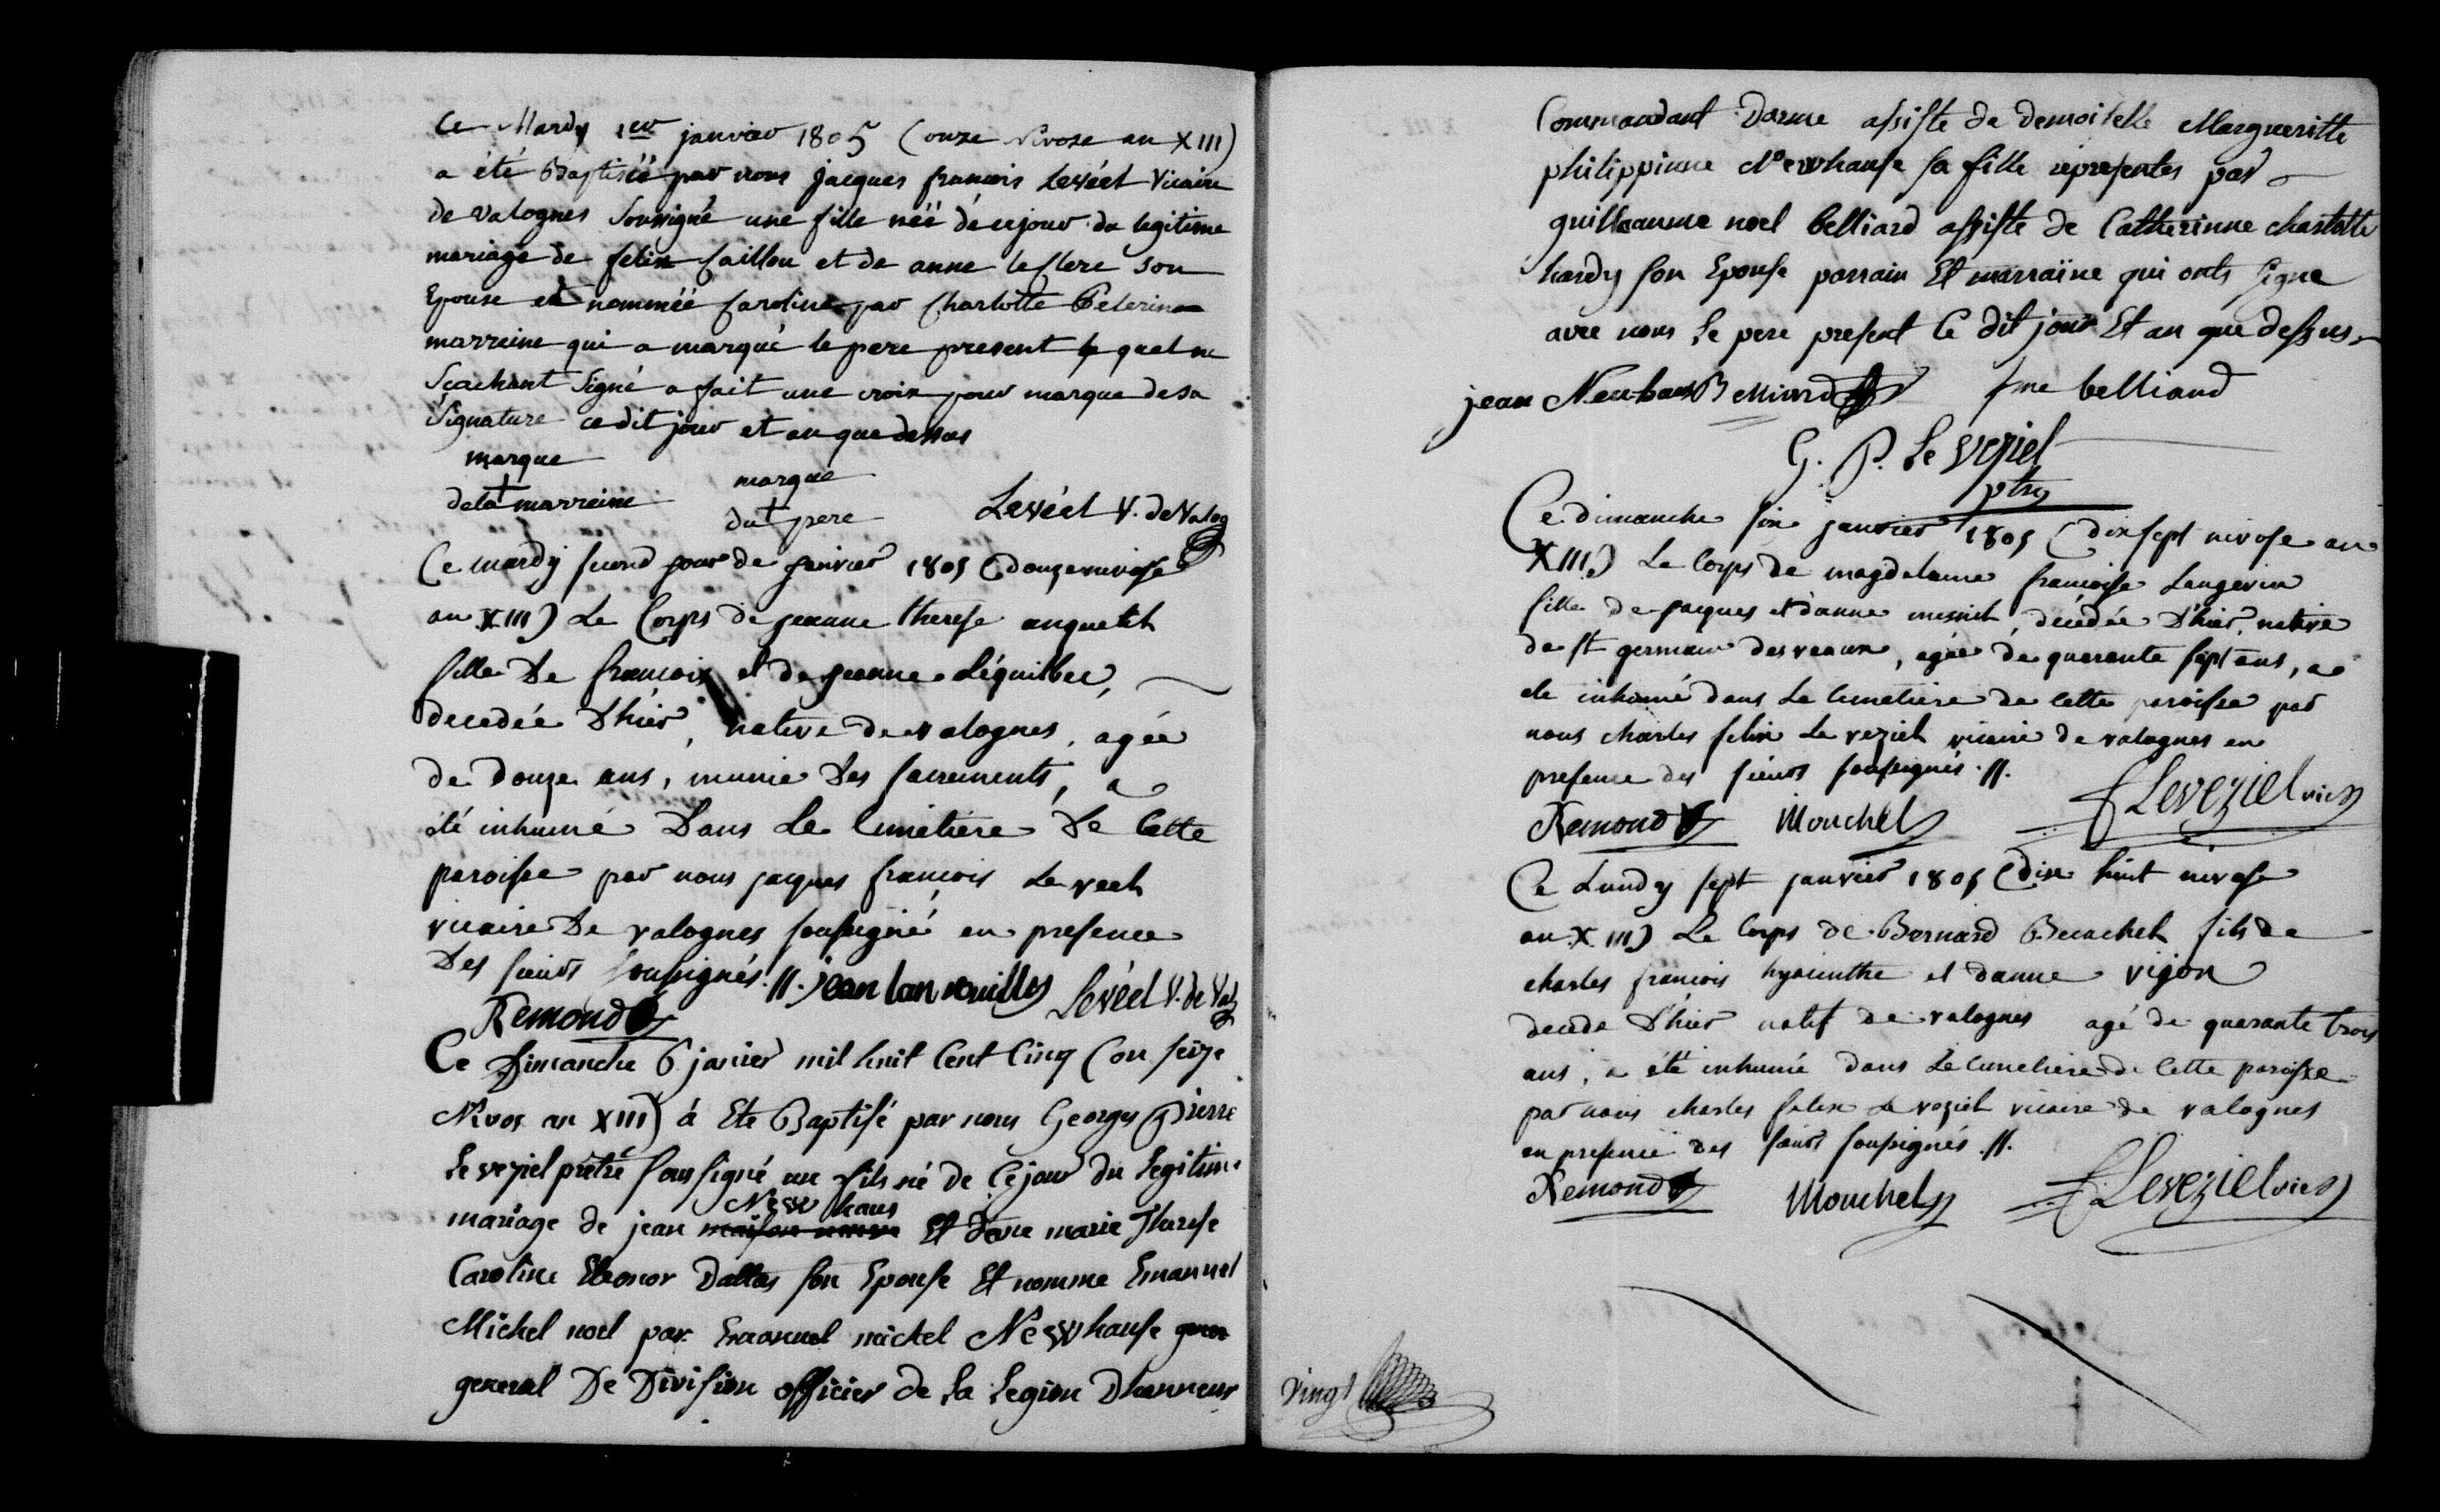 Ce Mardy 1er janvier 1805 (onze Nivose an XIII)
a été Baptiséé par nous jacques francois Levéel Vicaire
de valognes Soussigné une fille néé de ce jour du legitime
mariage de felix Caillou et de anne le Clerc son
Epouse et nomméé Caroline par Charlotte Pelerin
marreine qui a marqué le pere present le quel ne
Sçachant Signé a fait une croix pour marque de sa
Signature ce dit jour et an que dessus
marque
de la + marreine
marque
du + pere
Levéel V. de Valog
Ce mardy second jour de janvier 1805 (douze nivose
an XIII) Le Corps de jeanne therese anquetil
fille De francois et de jeanne Léguillier,
decedée D'hier, native de valognes, agée
de Douze ans, munie Des sacrements, a
été inhumé Dans Le Cimetiere De Cette
paroisse par nous jacques francois Le veel
vicaire De valognes soussigné en presence
Des sieurs soussignés.//. jean lannouilles Levéel V. de Val
Remond
Ce Dimanche 6 janier mil huit Cent Cinq (ou seize
Nivos an XIII) à Ete Baptisé par nous Georges Pierre
Le veziel prêtre sousigné un fils né de Ce jour du Legitime
Newhaus
mariage de jean maison neuve Et dane marie Therese
Caroline Eleonor Dallas son Epouse Et nomme Emanuel
Michel noel par Emanuel michel Newhause
general De Division officier de La Legion Dhonneur
Commandant Darme assiste de demoiselle Margueritte
philippinne Newhause sa fille representes par
guilleaume noel Belliard assiste de Catherinne charlotte
hardy son Epouse parrain Et marraine qui onts signe
avec nous Le pere present Ce dit jour Et an que dessus
jean Neuhaus Belliard fme belliard
G. P. Le veziel
ptre
Ce dimanche six janvier 1805 (dix sept nivose an
XIII) Le Corps de magdelaine francoise Langevin
fille de jacques et danne mesnil, décédée D'hier, native
de st germain des veaux, agée de quarante sept ans, a
ete inhumé dans Le Cimetiere de Cette paroisse par
nous charles felix Le veziel vicaire de valognes en
presence des sieurs soussignés.//.
Remond Mouchel f Leveziel vic
Ce Lundy sept janvier 1805 (dix huit nivose
an XIII) Le Corps de Bernard Beuachel fils de
charles francois hyacinthe et danne vigon
decede D'hier natif de valognes agé de quarante trois
ans, a été inhumé dans Le cimetiere de Cette paroisse
par nous charles felix Le veziel vicaire de valognes
en presence des sieurs soussignés.//.
Remond Mouchel f Leveziel vic
vingt